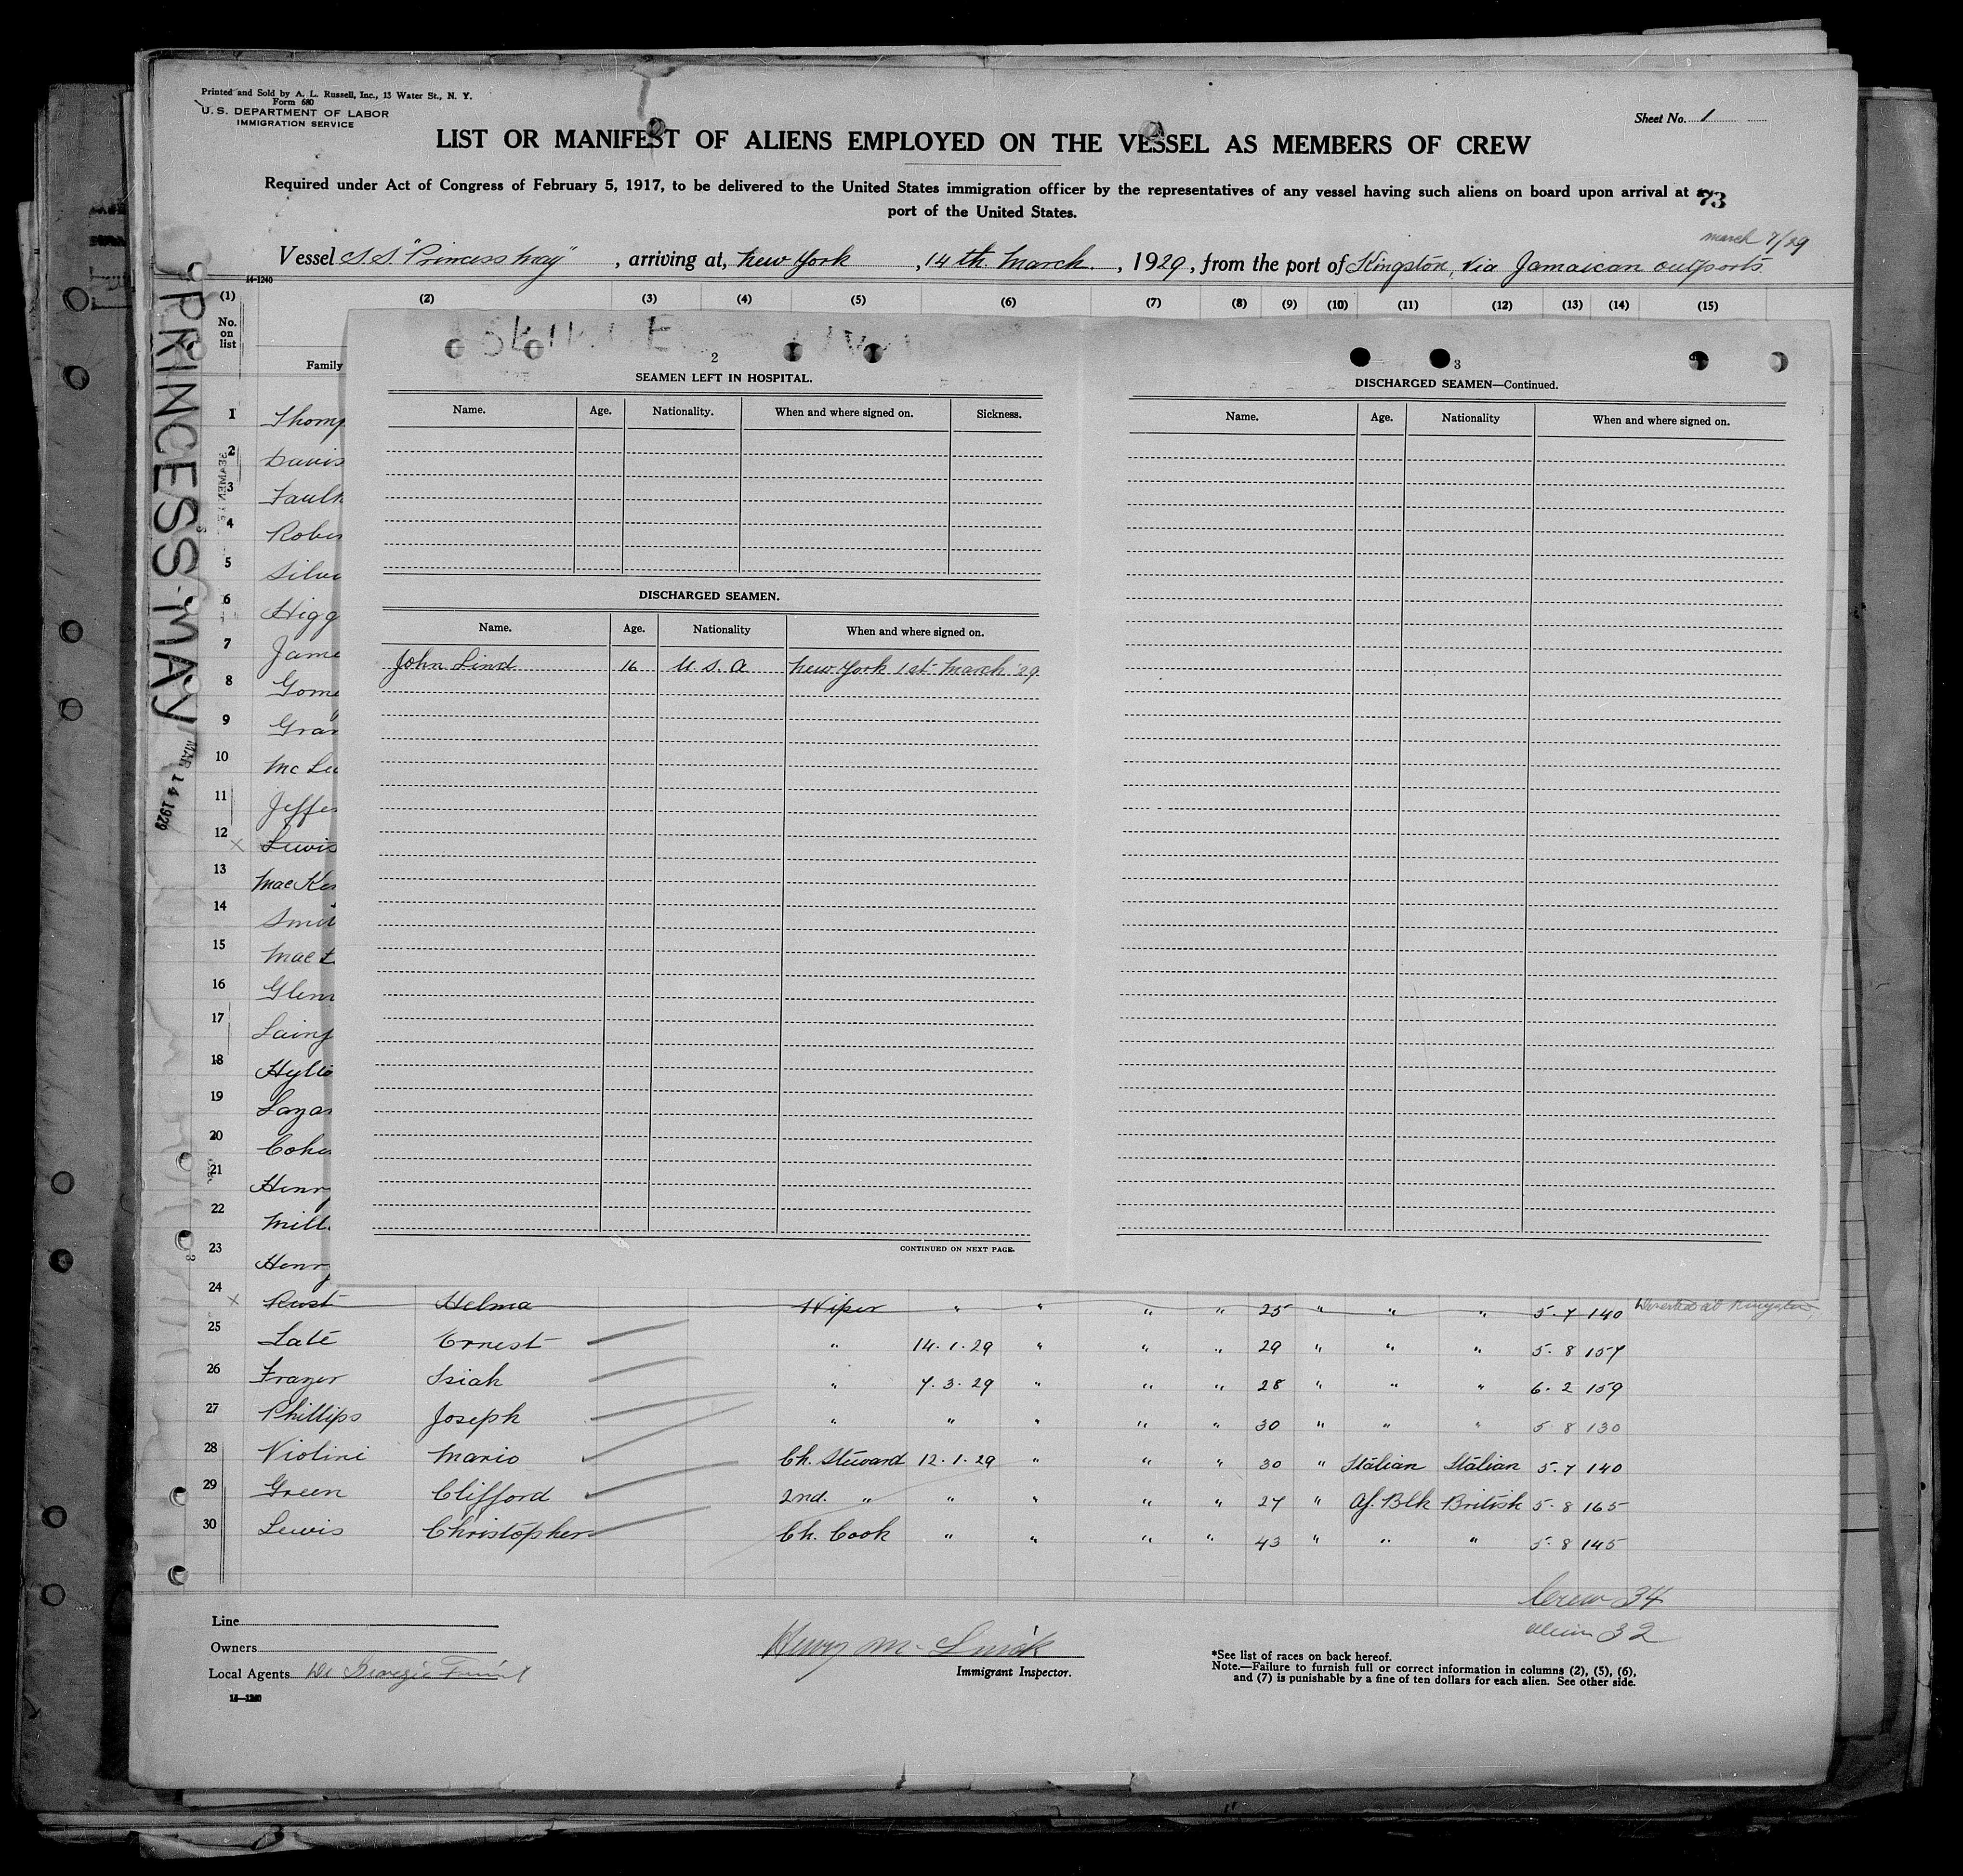 Printed and Sold by A. L. Russell, Inc., 13 Water St., N. Y.
Form 680
U. S. DEPARTMENT OF LABOR
IMMIGRATION SERVICE
Sheet No. 1
LIST OR MANIFEST OF ALIENS EMPLOYED ON THE VESSEL AS MEMBERS OF CREW
Required under Act of Congress of February 5, 1917, to be delivered to the United States immigration officer by the representatives of any vessel having such aliens on board upon arrival at a
port of the United States.
73
march 7/29
Vessel S.S. "Princess May", arriving at, New York, 14th. March, 1929, from the port of Kingston, Via Jamaican outports.
14-1240
(1) (2) (3) (4) (5) (6) (7) (8) (9) (10) (11) (12) (13) (14) (15)
No. on list
Family
PRINCESS MAY
MAR 14 1929
2
SEAMEN LEFT IN HOSPITAL.
Name. Age. Nationality. When and where signed on. Sickness.
DISCHARGED SEAMEN.
Name. Age. Nationality When and where signed on.
John Lind 16 U.S.A New York 1st March '29.
CONTINUED ON NEXT PAGE.
3
DISCHARGED SEAMEN—Continued.
Name. Age. Nationality When and where signed on.
1 Thomp
2 Davis
3 Faulk
4 Rober
5 Silve
6 Higg
7 Jame
8 Gome
9 Gran
10
11 Jeffer
12 Lewis
13 MacKen
14 Smit
15 Mac
16 Glen
17 Laing
18 Hylto
19 Lazar
20 Cohe
21 Henry
22 Mill
23 Henry
24 Rust Helma Wiper " " " " 25 " " " 5-7 140 Deserted at Kingston,
25 Late Ernest " 14.1.29 " " " 29 " " " 5.8 157
26 Frazer Isiah " 7.3.29 " " " 28 " " " 6.2 159
27 Phillips Joseph " " " " " 30 " " " 5 8 130
28 Violini Mario Ch. Steward 12.1.29 " " " 30 " Italian Italian 5.7 140
29 Green Clifford 2nd. " " " " " 27 " Af. Blk British 5.8 165
30 Lewis Christopher Ch. Cook " " " " 43 " " " 5.8 145
Crew 34
Alien 32
Line
Owners
Local Agents
14—1240
Immigrant Inspector.
*See list of races on back hereof.
Note.—Failure to furnish full or correct information in columns (2), (5), (6),
and (7) is punishable by a fine of ten dollars for each alien. See other side.